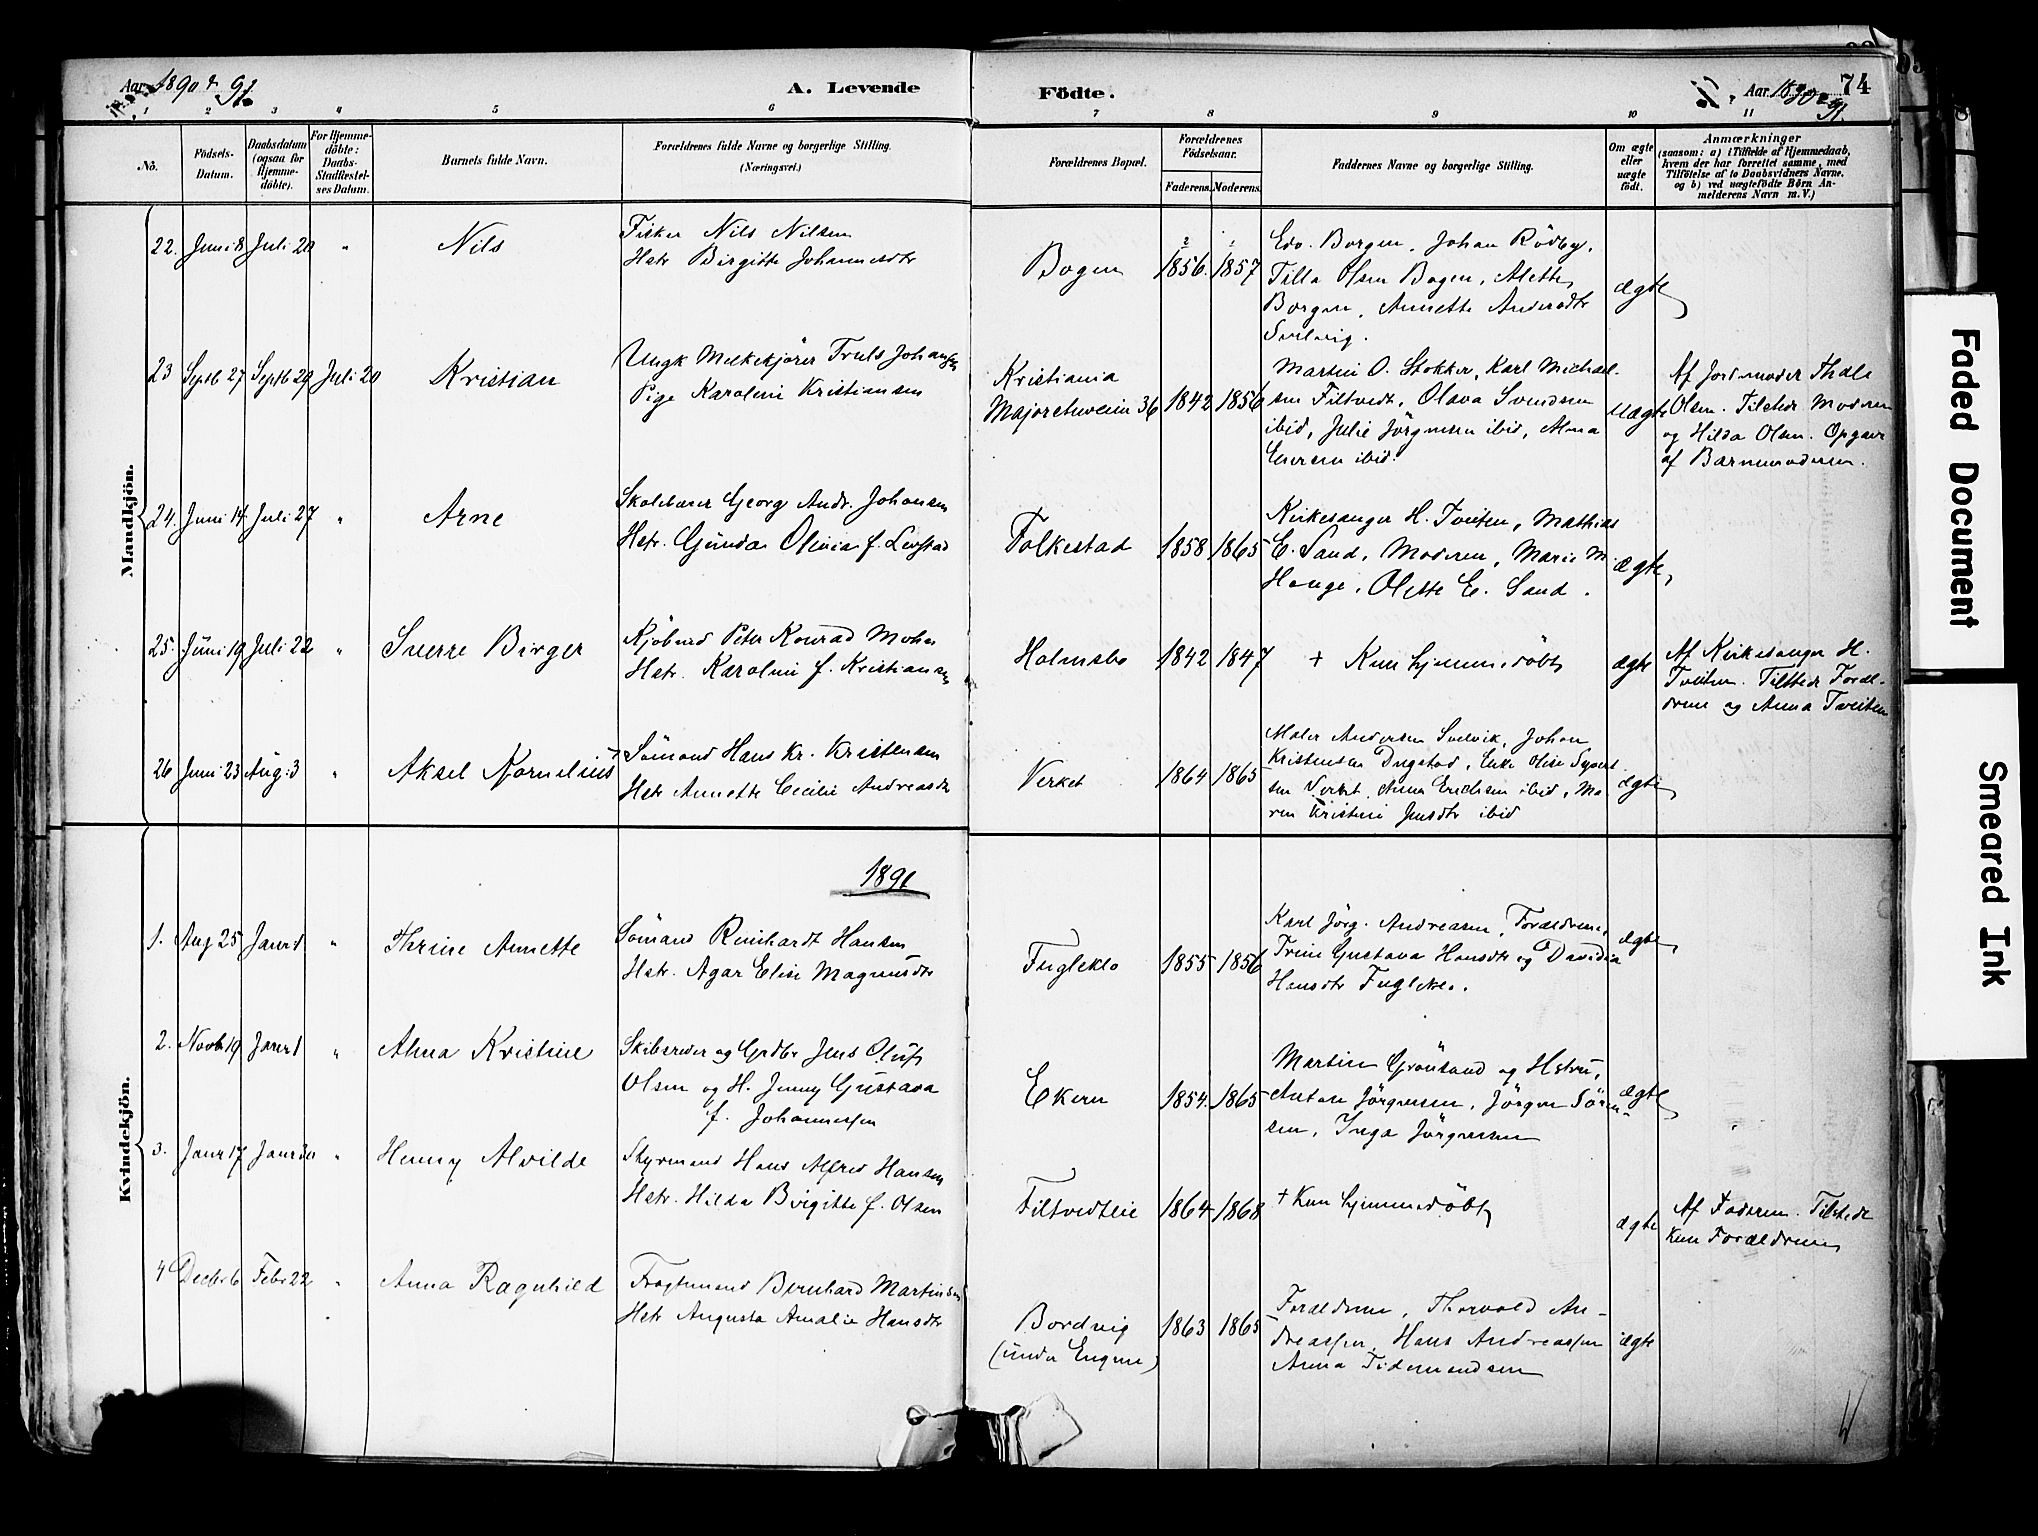 Aar 1890 & 91.
A. Levende
Födte.
Aar 1890 & 91.
74
1 2 3 4 5 6 7 8 9 10 11
No.
Födsels-Datum.
Daabsdatum (ogsaa for Hjemme-döbte).
For Hjemme-döbte: Daabs-Stadfæstel-ses Datum.
Barnets fulde Navn.
Forældrenes fulde Navne og borgerlige Stilling.
(Næringsvei.)
Forældrenes Bopæl.
Forældrenes Födselsaar.
Faderens. Moderens.
Faddernes Navne og borgerlige Stilling.
Om ægte eller uægte födt.
Anmærkninger
(saasom: a) i Tilfælde af Hjemmedaab,
hvem der har forrettet samme, med
Tilföielse af to Daabsvidners Navne,
og b) ved uægtefödte Börn An-
melderens Navn m. V.)
Mandkjön.
22. Juni 8 Juli 20 " Nils
Fisker Nils Nilsen
Hstr Birgitte Johannesdtr
Bogen 1856. 1857
Edv. Borgen, Johan Rödby,
Tilla Olsen Bogen, Alette
Borgen, Annette Andersdtr
Svelvig.
ægte
23 Septb 27 Septb 29 Juli 20 Kristian
Ungk Melkekjörer Truls Johansen
Pige Karoline Kristiansen
Kristiania
Majorstuveien 36 1842 1856
Martin O. Stokker, Karl Michael-
sen Filtvedt, Olava Svendsen
ibid, Julie Jörgensen ibid, Alma
Iversen ibid.
uægte
Af Jordmoder Thale
Olsen. Tilstede Moderen
og Hilda Olsen. Opgave
af Barnemoderen.
24. Juni 14. Juli 27 " Arne
Skolelærer Georg Andr. Johansen
Hstr. Gunda Olivia f. Levstad
Folkestad 1858 1865
Kirkesanger H. Tveiten, Mathias
E. Sand, Moderen, Marie M.
Hauge, Olette E. Sand.
ægte
25. Juni 19 Juli 22 " Sverre Birger
Kjöbmd Peter Konrad Mohn
Hstr. Karoline f. Kristiansen
Holmsbo 1842 1847
+ Kun hjemmedöbt
ægte
Af Kirkesanger H.
Tveiten. Tilstede Foræl-
drene og Anna Tveiten
26 Juni 23 Aug. 3 " Aksel Kornelius
Sömand Hans Kr. Kristensen
Hstr Annette Cecilie Andreasdtr
Verket 1864 1865
Maler Andersen Svelvik, Johan
Kristensen Dugstad, Enke Olise Syvert-
sen Verket, Anna Erichsen ibid, Ma
ren Kristine Jensdtr ibid
ægte
Kvindekjön.
1891
1. Aug 25 Janr 1 " Thrine Annette
Sömand Reinhardt Hansen
Hstr. Agar Elise Magnusdtr
Fugleklo 1855 1856
Karl Jörg. Andreasen, Forældrene,
Trine Gustava Hansdtr og Davidia
Hansdtr Fuglekl.
ægte
2. Novb 19 Janr 1 " Alma Kristine
Skibsreder og Grdbr Jens Oluf
Olsen og H. Jenny Gustava
f. Johannessen
Ekern 1854. 1865
Martin Grönsand og Hstru,
Anton Jörgensen, Jörgen Sören-
sen, Inga Jörgensen
ægte
3. Janr 17 Janr 30 " Henny Alvilde
Styrmand Hans Alfred Hansen
Hstr. Hilda Birgitte f. Olsen
Filtvedteie 1864 1868
+ Kun hjemmedöbt
ægte
Af Faderen. Tilstede
kun Forældrene
4 Decbr 6 Febr 22 " Anna Ragnhild
Fragtemand Bernhard Martinsen
Hstr Augusta Amalie Hansdtr
Bordvig
(under Engene) 1863 1865
Forældrene, Thorvald An-
dreassen, Hans Andreassen
Anna Tidemandsen
ægte
Faded Document
Smeared Ink